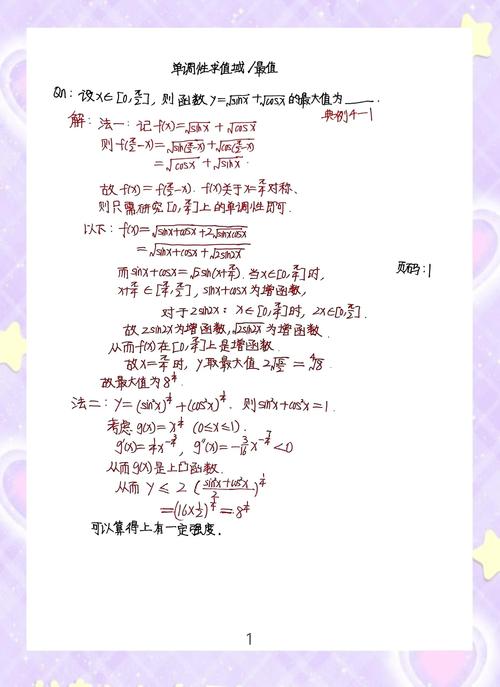 单调性求值域/最值
Qn: 设x∈[0,π/2], 则函数y=√sinx+√cosx的最大值为____.
典例4-1
解: 法一: 记f(x)=√sinx+√cosx
则f(π/2-x)=√sin(π/2-x)+√cos(π/2-x)
=√cosx+√sinx.
故f(x)=f(π/2-x). f(x)关于x=π/4对称、
则只需研究[0,π/4]上的单调性页可.
以下: f(x)=√(sinx+cosx+2√sinxcosx)
=√(sinx+cosx+√2sin2x)
而sinx+cosx=√2sin(x+π/4). 当x∈[0,π/4]时,
页码: 1
x+π/4∈[π/4,π/2], sinx+cosx为增函数,
对于2sin2x: x∈[0,π/4]时, 2x∈[0,π/2].
故2sin2x为增函数, √2sin2x为增函数.
从而f(x)在[0,π/4]上是增函数.
故x=π/4时, y取最大值 2√(√2/2)=⁴√8.
故最大值为8^(1/4)
法二: y=(sin²x)^(1/4)+(cos²x)^(1/4). 则sin²x+cos²x=1.
考虑g(x)=x^(1/4) (0≤x≤1).
g'(x)=1/4x^(-3/4), g''(x)=-3/16x^(-7/4)<0
从而g(x)是上凸函数.
从而 y≤2((sin²x+cos²x)/2)^(1/4)
=(16×1/2)^(1/4)=8^(1/4)
可以算得上有一定强度.
1